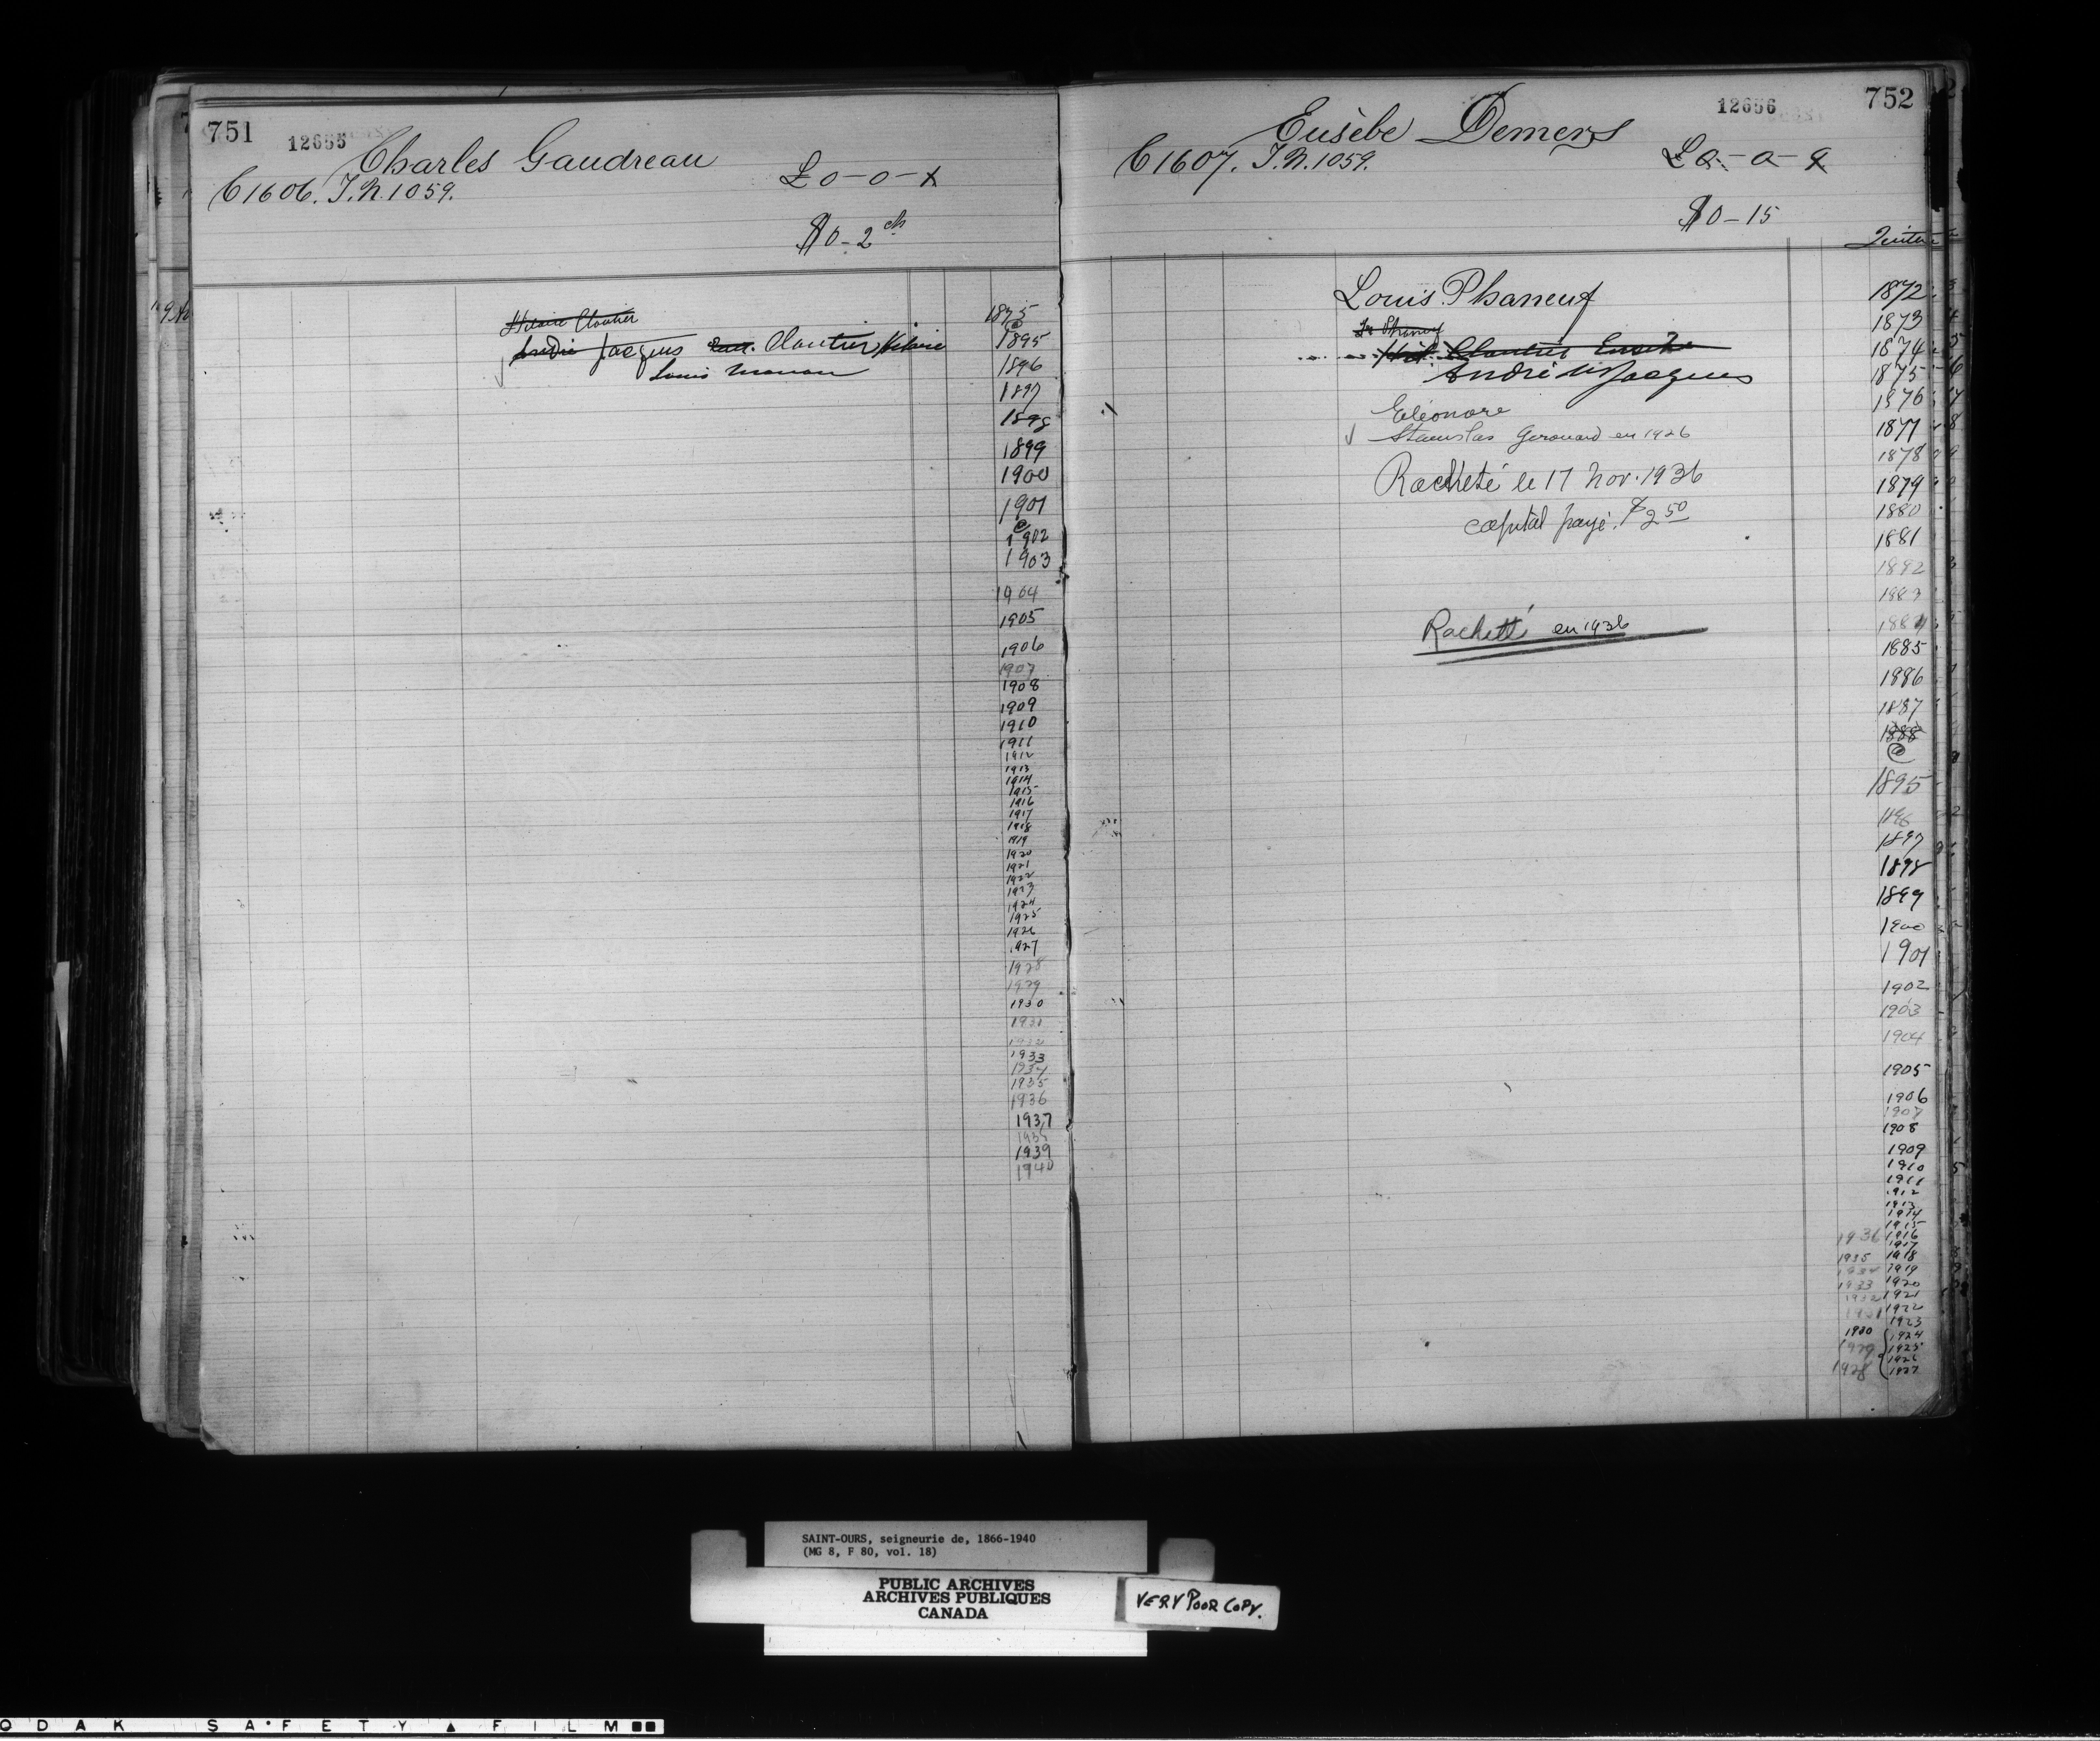 751
12655
Charles Gaudreau
C1606. T.N.1059.
£0-0-x
$0-2 cts
Hilaire Cloutier
André Jacques Cloutier Hilaire
Louis
1895
1896
1897
1898
1899
1900
1901
@
1902
1903
1904
1905
1906
1907
1908
1909
1910
1911
1912
1913
1914
1915
1916
1917
1918
1919
1920
1921
1922
1923
1924
1925
1926
1927
1928
1929
1930
1931
1932
1933
1934
1935
1936
1937
1938
1939
1940
752
12656
Eusèbe Demers
C1607. T.N.1059.
$0-15
Louis Phaneuf
Cloutier Eusèbe
André Jacques
Eléonore
Stanislas Gerouard en 1926
Racheté le 17 Nov. 1936
capital payé. $2 50
Racheté en 1936
1872
1873
1874
1875
1876
1877
1878
1879
1880
1881
1882
1883
1884
1885
1886
1887
1888
@
1895
1896
1897
1898
1899
1900
1901
1902
1903
1904
1905
1906
1907
1908
1909
1910
1911
1912
1913
1914
1915
1936 1916
1917
1935 1918
1934 1919
1933 1920
1932 1921
1931 1922
1923
1930 1924
1929 1925
1926
1928 1927
SAINT-OURS, seigneurie de, 1866-1940
(MG 8, F 80, vol. 18)
PUBLIC ARCHIVES
ARCHIVES PUBLIQUES
CANADA
VERY POOR COPY.
ODAK SAFETY FILM